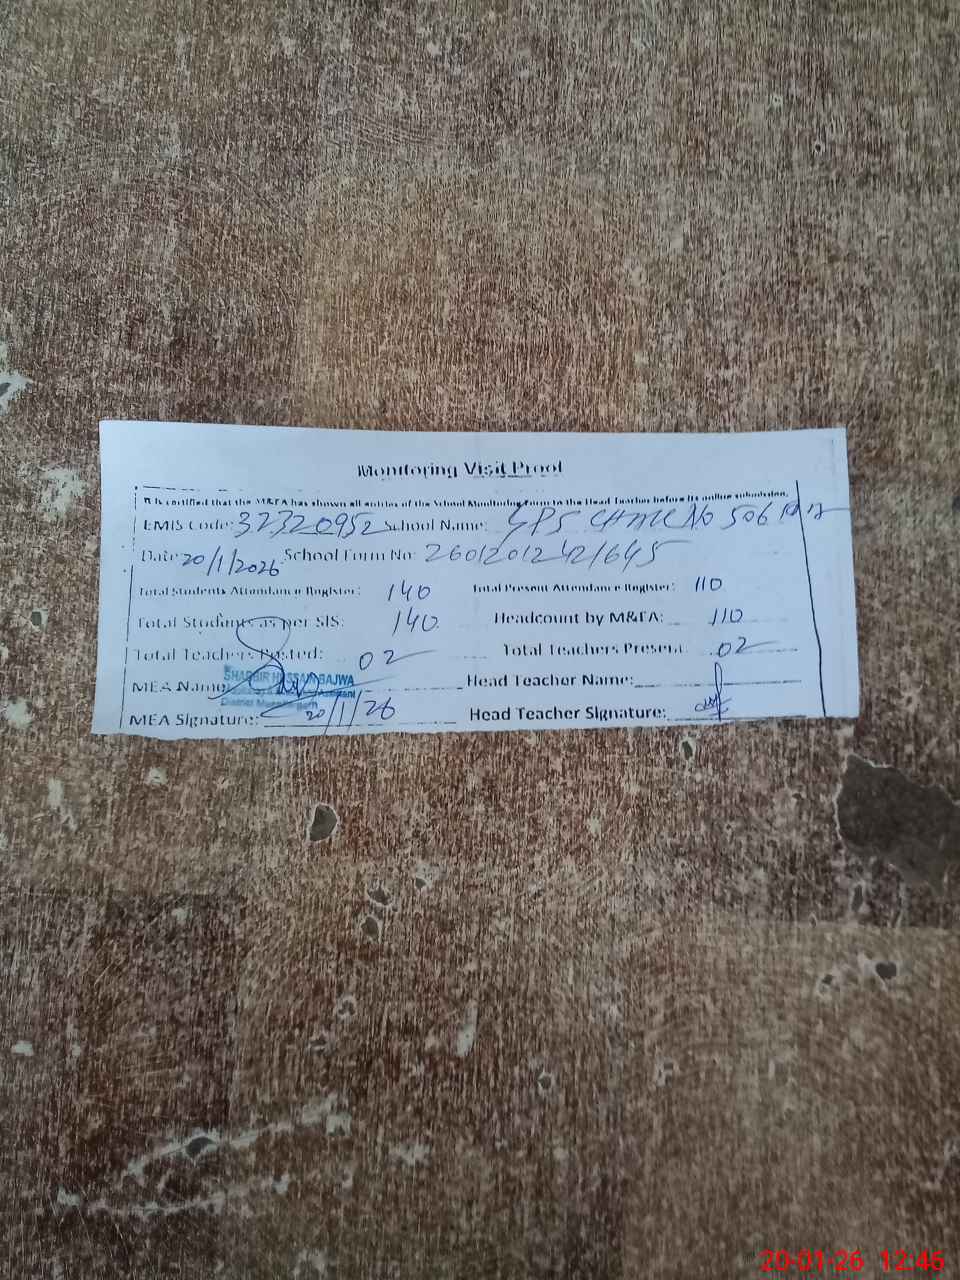 Monitoring Visit Proof
It is certified that the M&EA has shown all entries of the School Monitoring Form to the Head Teacher before its online submission.
EMIS Code: 32320952 School Name: GPS CHAK NO 506
Date: 20/1/2026 School Form No:
Total Students Attendance Register: 140 Total Present Attendance Register: 110
Total Students as per SIS: 140 Headcount by M&EA: 110
Total Teachers Posted: 02 Total Teachers Present: 02
MEA Name: SHABBIR HUSSAIN BAJWA Head Teacher Name:
Monitoring & Assistant
District Muzaffargarh
MEA Signature: 20/1/26 Head Teacher Signature:
20-01-26 12:46